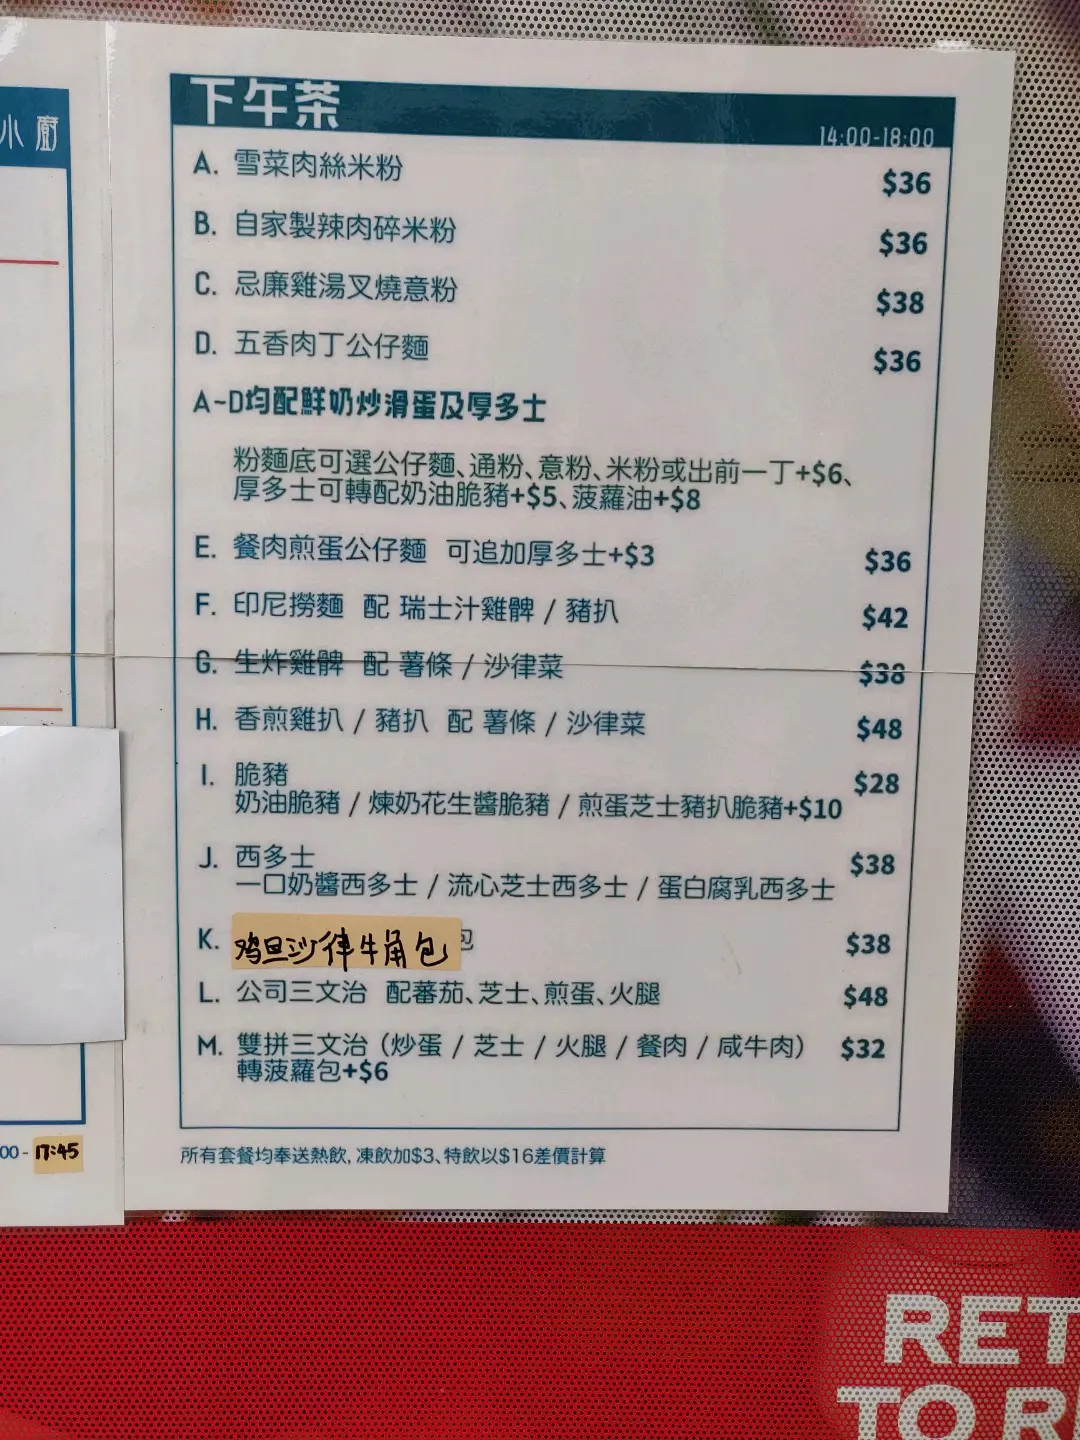 小廚
00 - 17:45
下午茶
14:00-18:00
A. 雪菜肉絲米粉 $36
B. 自家製辣肉碎米粉 $36
C. 忌廉雞湯叉燒意粉 $38
D. 五香肉丁公仔麵 $36
A~D均配鮮奶炒滑蛋及厚多士
粉麵底可選公仔麵、通粉、意粉、米粉或出前一丁+$6、
厚多士可轉配奶油脆豬+$5、菠蘿油+$8
E. 餐肉煎蛋公仔麵 可追加厚多士+$3 $36
F. 印尼撈麵 配 瑞士汁雞髀 / 豬扒 $42
G. 生炸雞髀 配 薯條 / 沙律菜 $38
H. 香煎雞扒 / 豬扒 配 薯條 / 沙律菜 $48
I. 脆豬 $28
奶油脆豬 / 煉奶花生醬脆豬 / 煎蛋芝士豬扒脆豬+$10
J. 西多士 $38
一口奶醬西多士 / 流心芝士西多士 / 蛋白腐乳西多士
K. 鸡旦沙律牛角包 包 $38
L. 公司三文治 配蕃茄、芝士、煎蛋、火腿 $48
M. 雙拼三文治（炒蛋 / 芝士 / 火腿 / 餐肉 / 咸牛肉） $32
轉菠蘿包+$6
所有套餐均奉送熱飲, 凍飲加$3、特飲以$16差價計算
RET
TO R